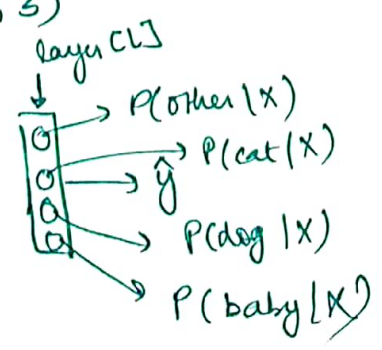 5)
layer [L]
P(other | x)
P(cat | x)
ŷ
P(dog | x)
P(baby | x)